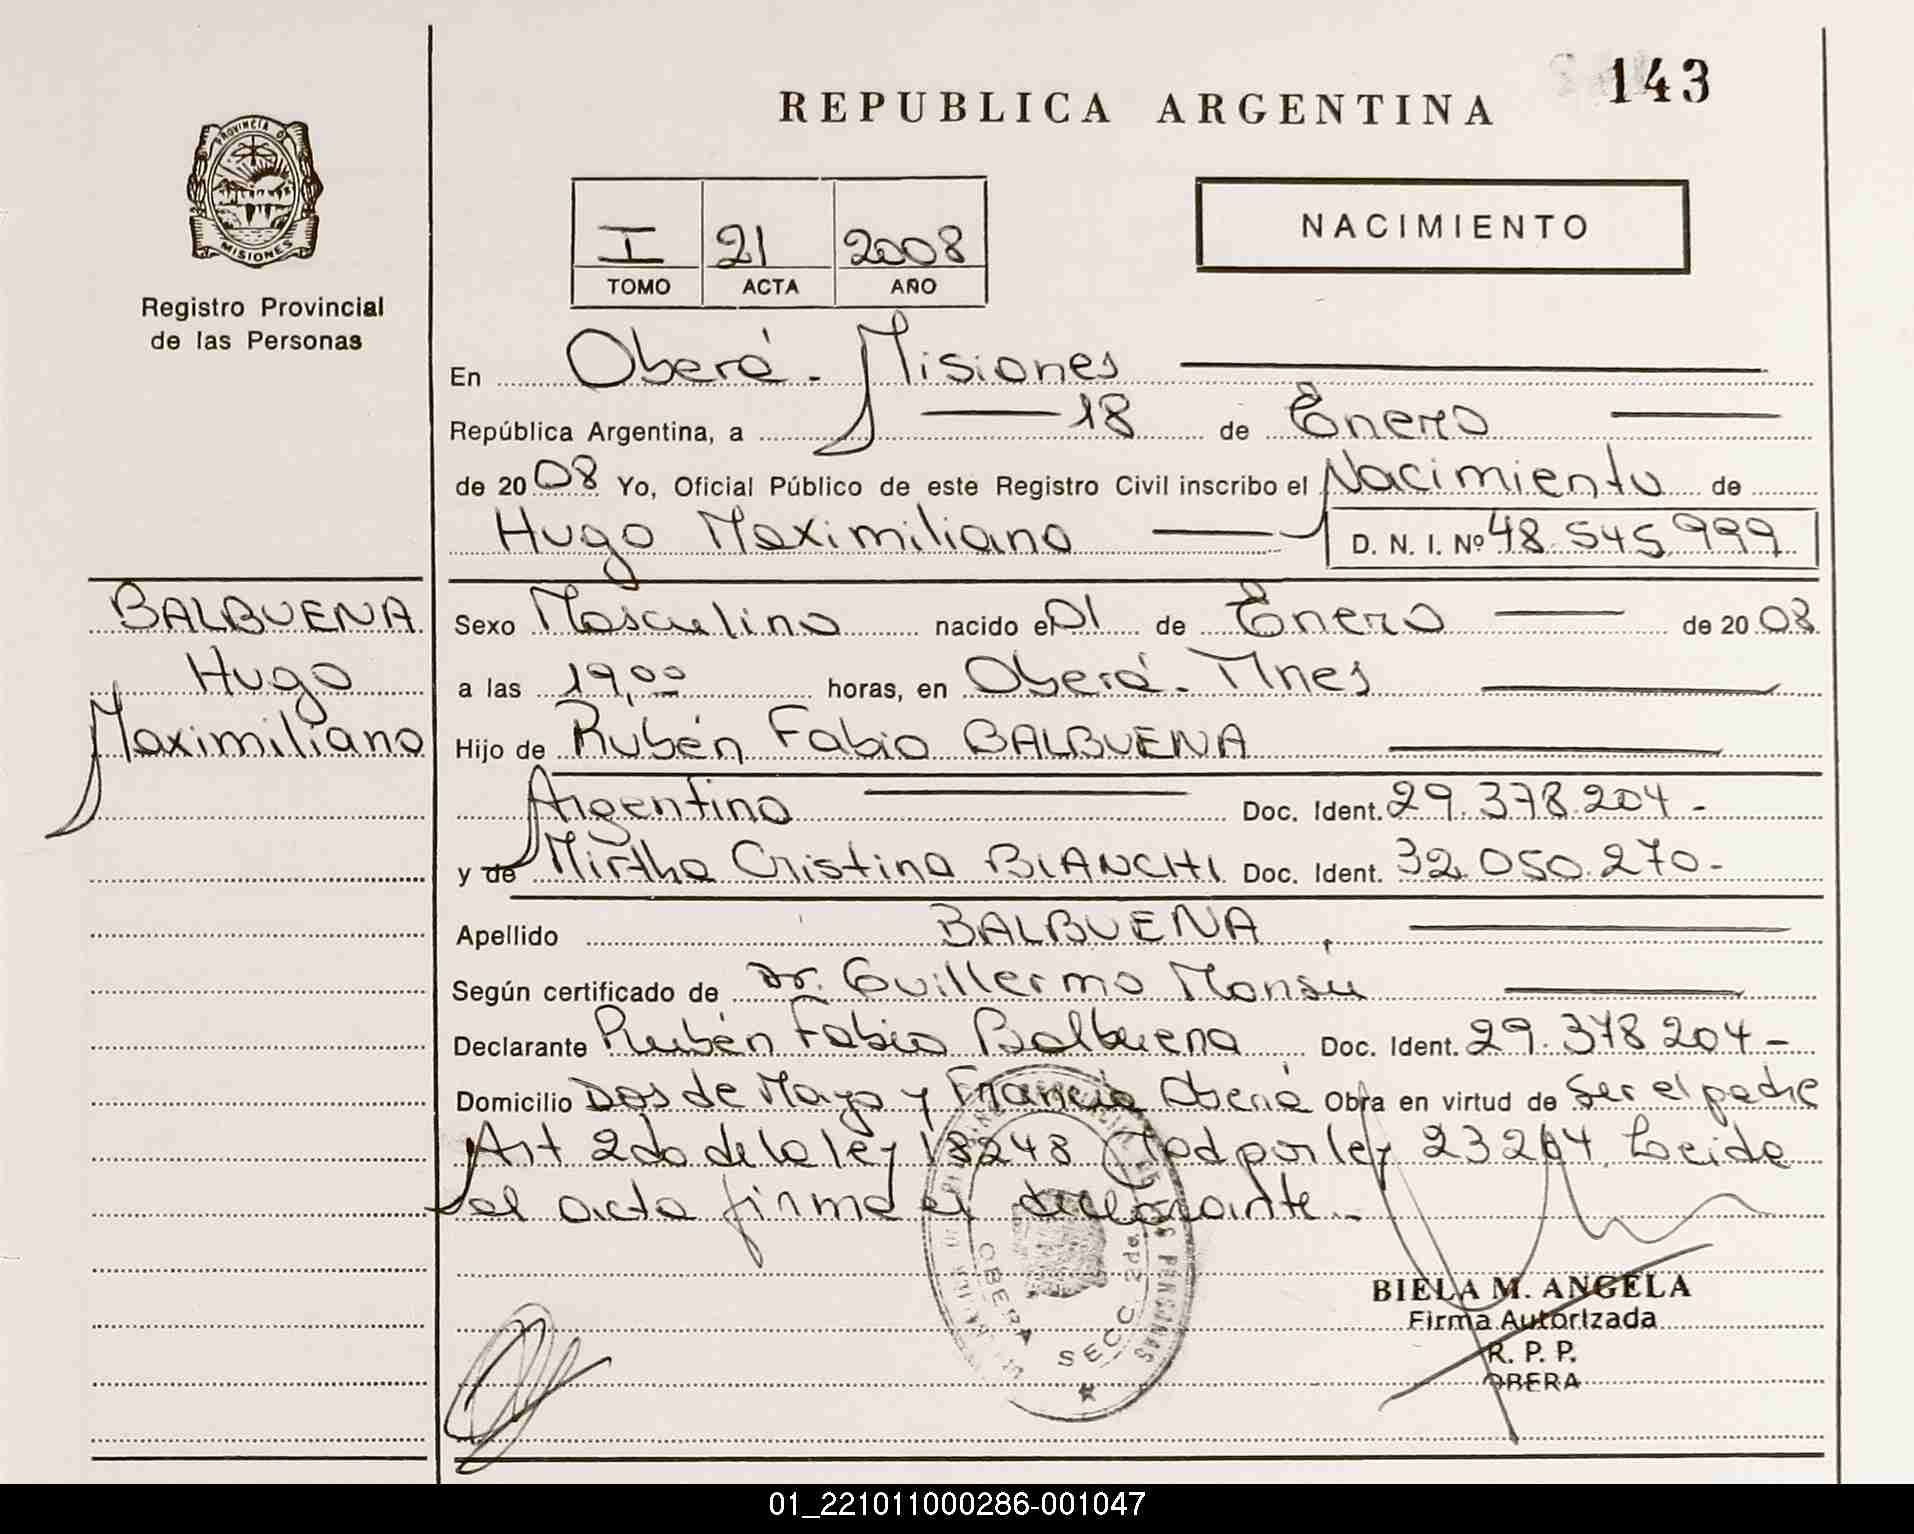 143
REPUBLICA ARGENTINA
PROVINCIA DE
MISIONES
Registro Provincial
de las Personas
I 21 2008
TOMO ACTA AÑO
NACIMIENTO
En Oberá - Misiones
República Argentina, a 18 de Enero
de 2008 Yo, Oficial Público de este Registro Civil inscribo el Nacimiento de
Hugo Maximiliano D. N. I. Nº 48.545.999
BALBUENA
Hugo
Maximiliano
Sexo Masculino nacido el 01 de Enero de 2008
a las 19,00 horas, en Oberá - Mnes
Hijo de Rubén Fabio BALBUENA
Argentino Doc. Ident. 29.378.204 -
y de Mirtha Cristina BIANCHI Doc. Ident. 32.050.270 -
Apellido BALBUENA
Según certificado de Dr. Guillermo Monsú
Declarante Rubén Fabio Balbuena Doc. Ident. 29.378 204 -
Domicilio Dos de Mayo y Francia Oberá Obra en virtud de ser el padre
Art 2do de la ley 18248 Mod por ley 23264. Leida
el acta firma el declarante -
OBERA SECC. 2da.
BIELA M. ANGELA
Firma Autorizada
R. P. P.
OBERA
01_221011000286-001047